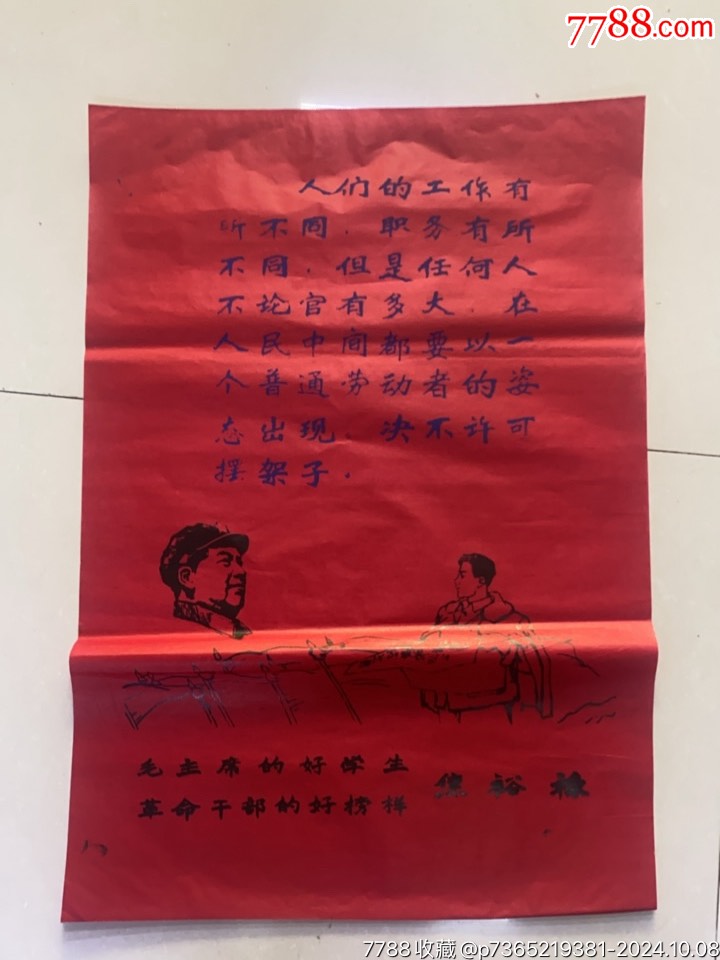 7788.com
人们的工作有
所不同，职务有所
不同，但是任何人
不论官有多大，在
人民中间都要以一
个普通劳动者的姿
态出现，决不许可
摆架子．
毛主席的好学生
革命干部的好榜样
焦裕禄
7788收藏@p7365219381-2024.10.08